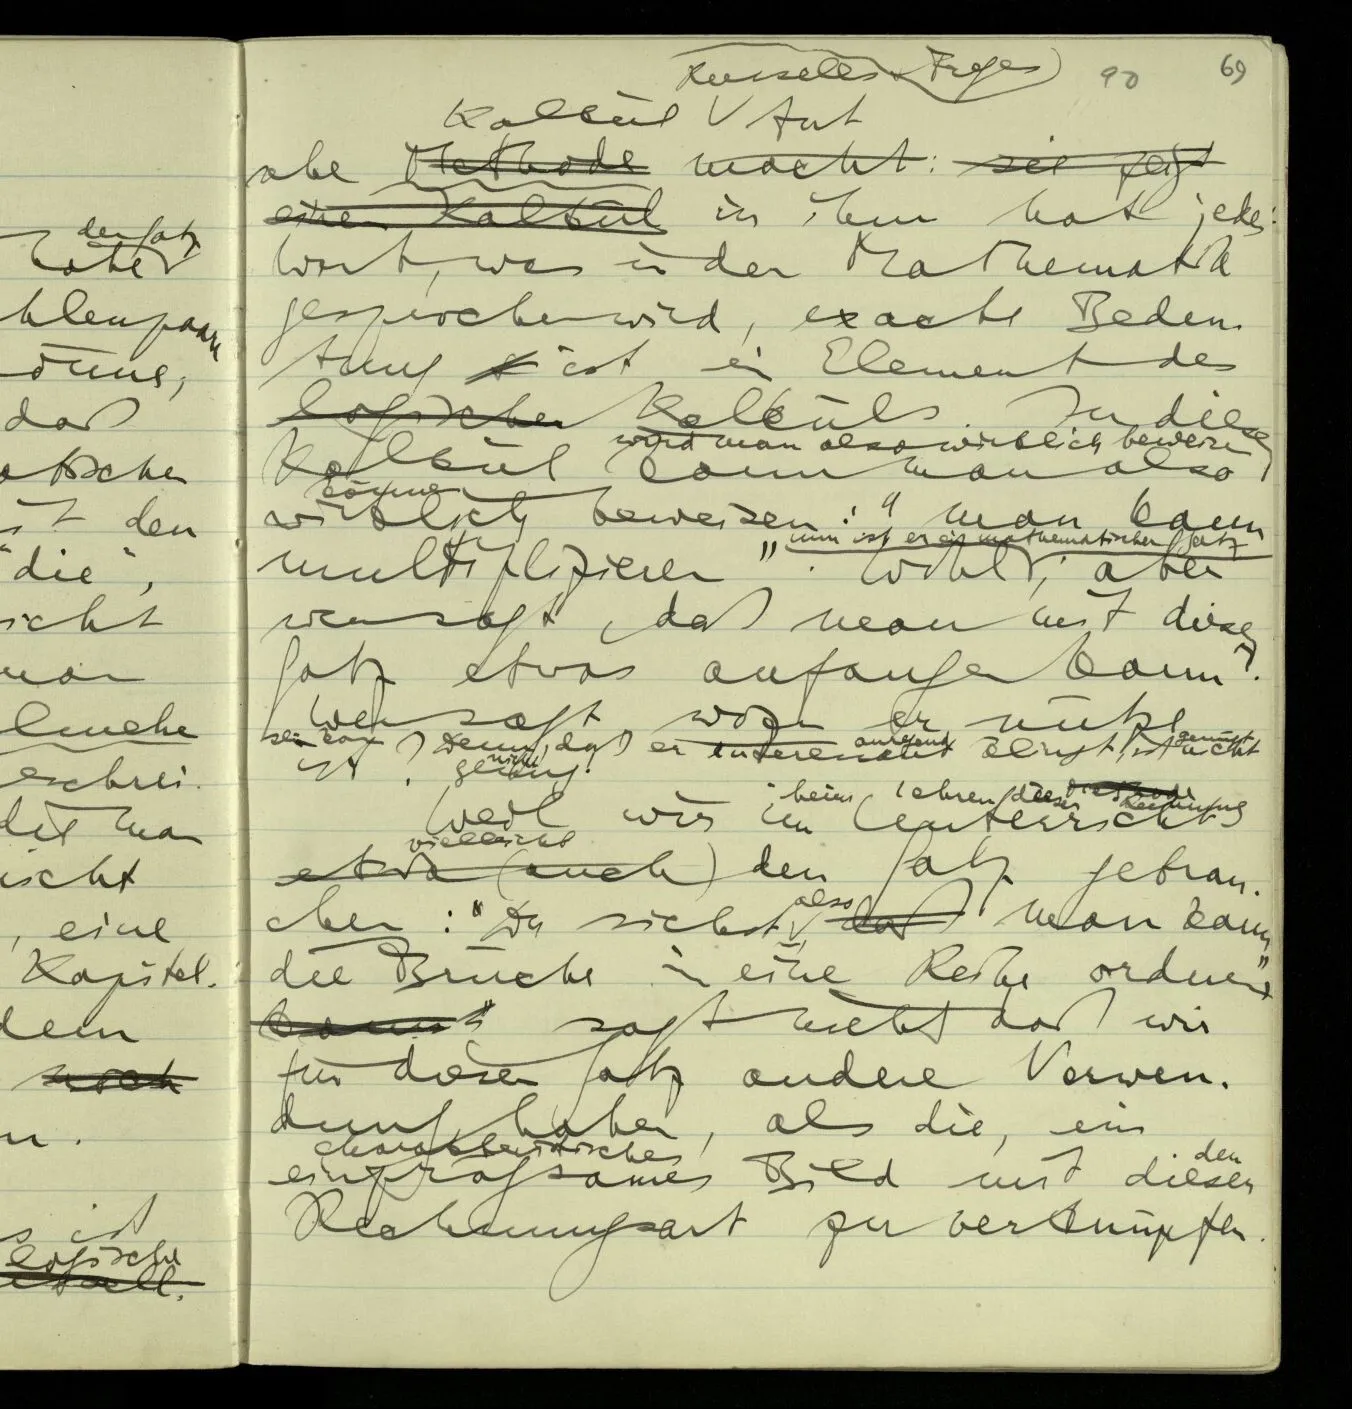 den Satz
habe
hlenpaar
könne,
daß
atischen
ist den
"die",
nicht
man
eschrei-
det man
nicht
, eine
Kapitel.
dem
noch
n.
s ist
logische
69
90
Russells & Freges
Kalkül tut
abe Methode macht: sie zeigt
einen Kalkül in ihm hat jedes
Wort, was in der Mathematik
gesprochen wird, exacte Bedeu-
tung & ist ein Element des
logischen Kalküls. In diesem
wird man also wirklich beweisen
Kalkül kann man also
können
wirklich beweisen: "man kann
nun ist er ein mathematischer Satz
multiplizieren". Wohl, aber
wer sagt, daß man mit diesem
Satz etwas anfangen kann?
Wer sagt, wozu er nütze
sein kann Denn, daß er interessant klingt, ist nicht
ist? genug
nicht
beim Lehren dieser Methode Rechnung
Weil wir im Unterricht
vielleicht
etwa (auch) den Satz gebrau-
also
chen: "Du siehst, daß man kann
die Brüche in eine Reihe ordnen"
kannst" sagt nicht daß wir
für diesen Satz andere Verwen-
dung haben, als die, ein
charakteristisches
einprägsames Bild mit dieser
den
Rechnungsart zu verknüpfen.